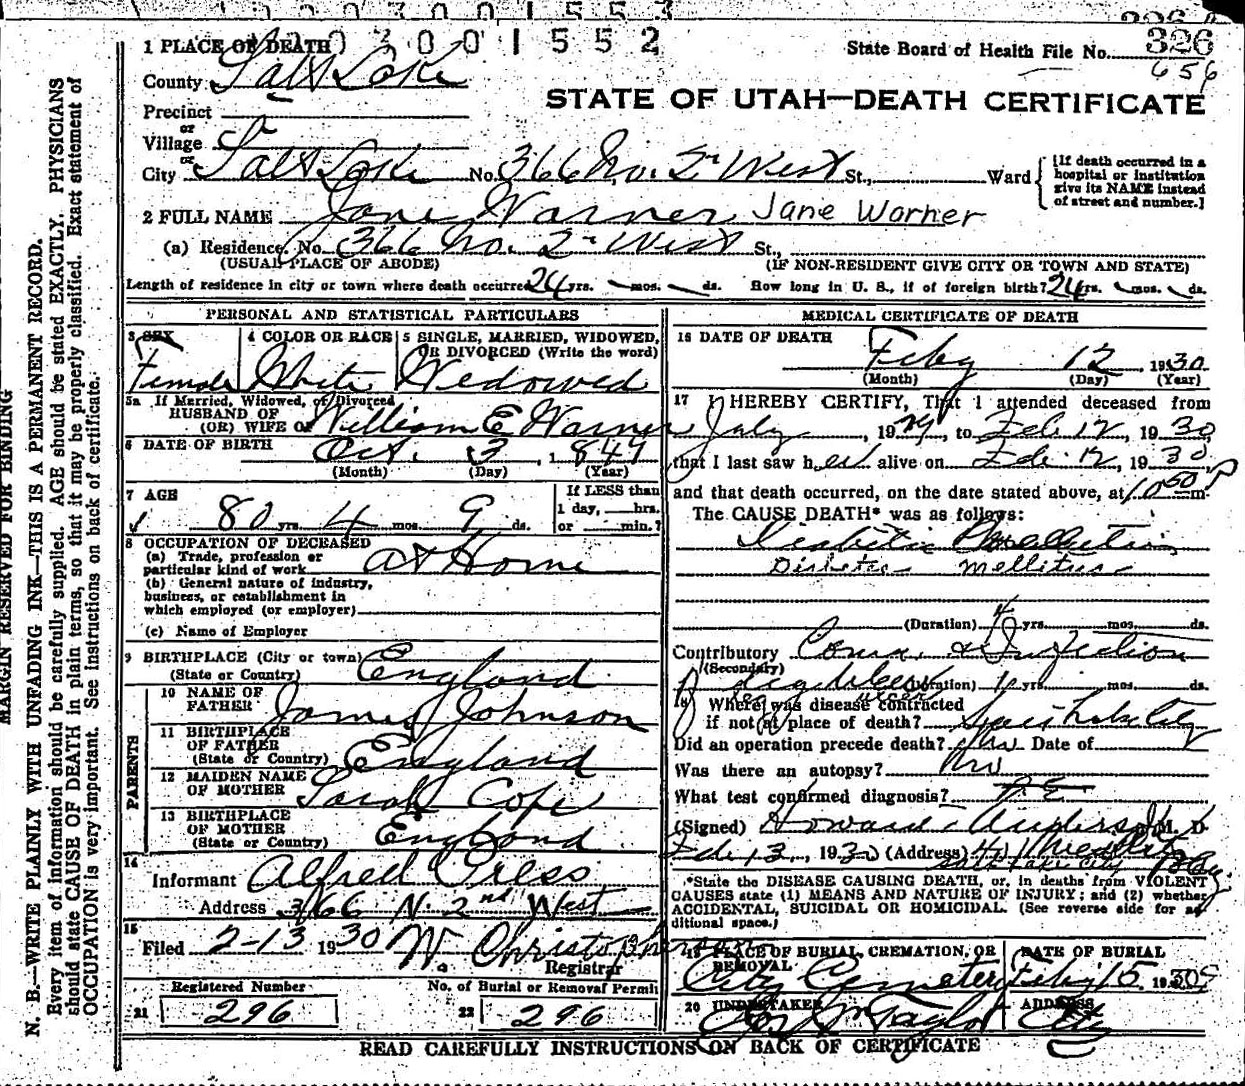 3001552
1 PLACE OF DEATH
County Salt Lake
State Board of Health File No. 326
656
STATE OF UTAH—DEATH CERTIFICATE
Precinct
or
Village
or
City Salt Lake No. 366 No. 2nd West St., Ward
[If death occurred in a hospital or institution give its NAME instead of street and number.]
2 FULL NAME Jane Warner Jane Warner
(a) Residence. No. 366 No. 2nd West St.,
(USUAL PLACE OF ABODE) (IF NON-RESIDENT GIVE CITY OR TOWN AND STATE)
Length of residence in city or town where death occurred 24 yrs. — mos. — ds. How long in U. S., if of foreign birth? 24 yrs. — mos. — ds.
PERSONAL AND STATISTICAL PARTICULARS
3 SEX
Female
4 COLOR OR RACE
White
5 SINGLE, MARRIED, WIDOWED, OR DIVORCED (Write the word)
Widowed
5a If Married, Widowed, or Divorced
HUSBAND OF
(OR) WIFE OF William E Warner
6 DATE OF BIRTH Oct. 3, 1849
(Month) (Day) (Year)
7 AGE
80 yrs. 4 mos. 9 ds.
If LESS than 1 day, hrs. or min.?
8 OCCUPATION OF DECEASED
(a) Trade, profession or particular kind of work At Home
(b) General nature of industry, business, or establishment in which employed (or employer)
(c) Name of Employer
9 BIRTHPLACE (City or town)
(State or Country) England
PARENTS
10 NAME OF FATHER James Johnson
11 BIRTHPLACE OF FATHER
(State or Country) England
12 MAIDEN NAME OF MOTHER Sarah Cope
13 BIRTHPLACE OF MOTHER
(State or Country) England
14
Informant Alfred Press
Address 366 N. 2nd West
15
Filed 2-13 1930 W. Christopherson
Registrar
Registered Number
21 296
No. of Burial or Removal Permit
22 296
MEDICAL CERTIFICATE OF DEATH
16 DATE OF DEATH
Feby 12 1930
(Month) (Day) (Year)
17 I HEREBY CERTIFY, That I attended deceased from
July, 1929, to Feb. 12, 1930,
that I last saw her alive on Feb. 12, 1930,
and that death occurred, on the date stated above, at 10 50 P m.
The CAUSE DEATH* was as follows:
Diabetic Mellitus
Diabetes Mellitus
(Duration) yrs. mos. ds.
Contributory Coma & Infection
(Secondary)
leg ulcer (Duration) yrs. mos. ds.
18 Where was disease contracted
if not at place of death? Salt Lake City
Did an operation precede death? No Date of
Was there an autopsy? No
What test confirmed diagnosis?
(Signed) Howard Anderson M. D
Feb 13, 1930 (Address)
Salt Lake City
*State the DISEASE CAUSING DEATH, or, in deaths from VIOLENT
CAUSES state (1) MEANS AND NATURE OF INJURY; and (2) whether
ACCIDENTAL, SUICIDAL OR HOMICIDAL. (See reverse side for ad
ditional space.)
19 PLACE OF BURIAL, CREMATION, OR REMOVAL
City Cemetery
DATE OF BURIAL
Feby 15 1930
20 UNDERTAKER
Taylor
ADDRESS
City
READ CAREFULLY INSTRUCTIONS ON BACK OF CERTIFICATE
MARGIN RESERVED FOR BINDING
N. B.—WRITE PLAINLY WITH UNFADING INK—THIS IS A PERMANENT RECORD.
Every item of information should be carefully supplied. AGE should be stated EXACTLY. PHYSICIANS
should state CAUSE OF DEATH in plain terms, so that it may be properly classified. Exact statement of
OCCUPATION is very important. See instructions on back of certificate.